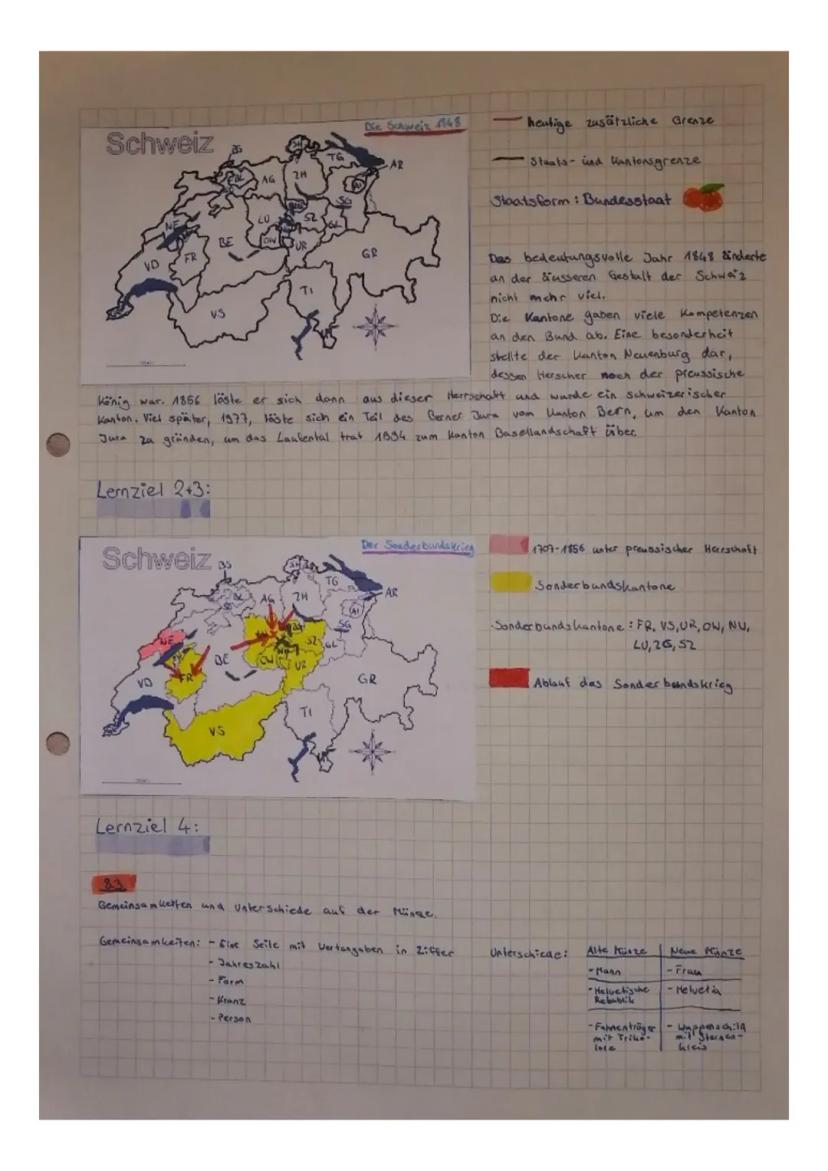 Schweiz
Die Schweiz 1848
BS
BL
AG
ZH
SH
TG
AR
AI
SG
LU
SZ
GL
NE
BE
OW
UR
GR
VD
FR
VS
TI
heutige zusätzliche Grenze
Staats- und Kantonsgrenze
Staatsform: Bundesstaat
Das bedeutungsvolle Jahr 1848 änderte
an der äusseren Gestalt der Schweiz
nicht mehr viel.
Die Kantone gaben viele Kompetenzen
an den Bund ab. Eine besonderheit
stellte der Kanton Neuenburg dar,
dessen Herscher noch der preussische
König war. 1856 löste er sich dann aus dieser Herrschaft und wurde ein schweizerischer
Kanton. Viel später, 1977, löste sich ein Teil des Berner Jura vom Kanton Bern, um den Kanton
Jura zu gründen, um das Laufental trat 1994 zum Kanton Basellandschaft über.
Lernziel 2+3:
Schweiz
Der Sonderbundskrieg
BS
BL
SO
AG
ZH
SH
TG
AR
AI
SG
NE
BE
OW
SZ
GL
UR
VD
FR
GR
VS
TI
1707-1856 unter preussischer Herrschaft
Sonderbundskantone
Sonderbundskantone: FR, VS, UR, OW, NW,
LU, ZG, SZ
Ablauf das Sonderbundskrieg
Lernziel 4:
83
Gemeinsamkeiten und Unterschiede auf der Münze.
Gemeinsamkeiten: - Eine Seite mit Wertangaben in Ziffer
- Jahreszahl
- Form
- Kranz
- Person
Unterschiede:
Alte Münze | Neue Münze
- Mann | - Frau
- Helvetische | - Helvetia
Rebublik
- Fahnenträger | - Wappenschild
mit Triko- | mit Sternen-
lore | kreis